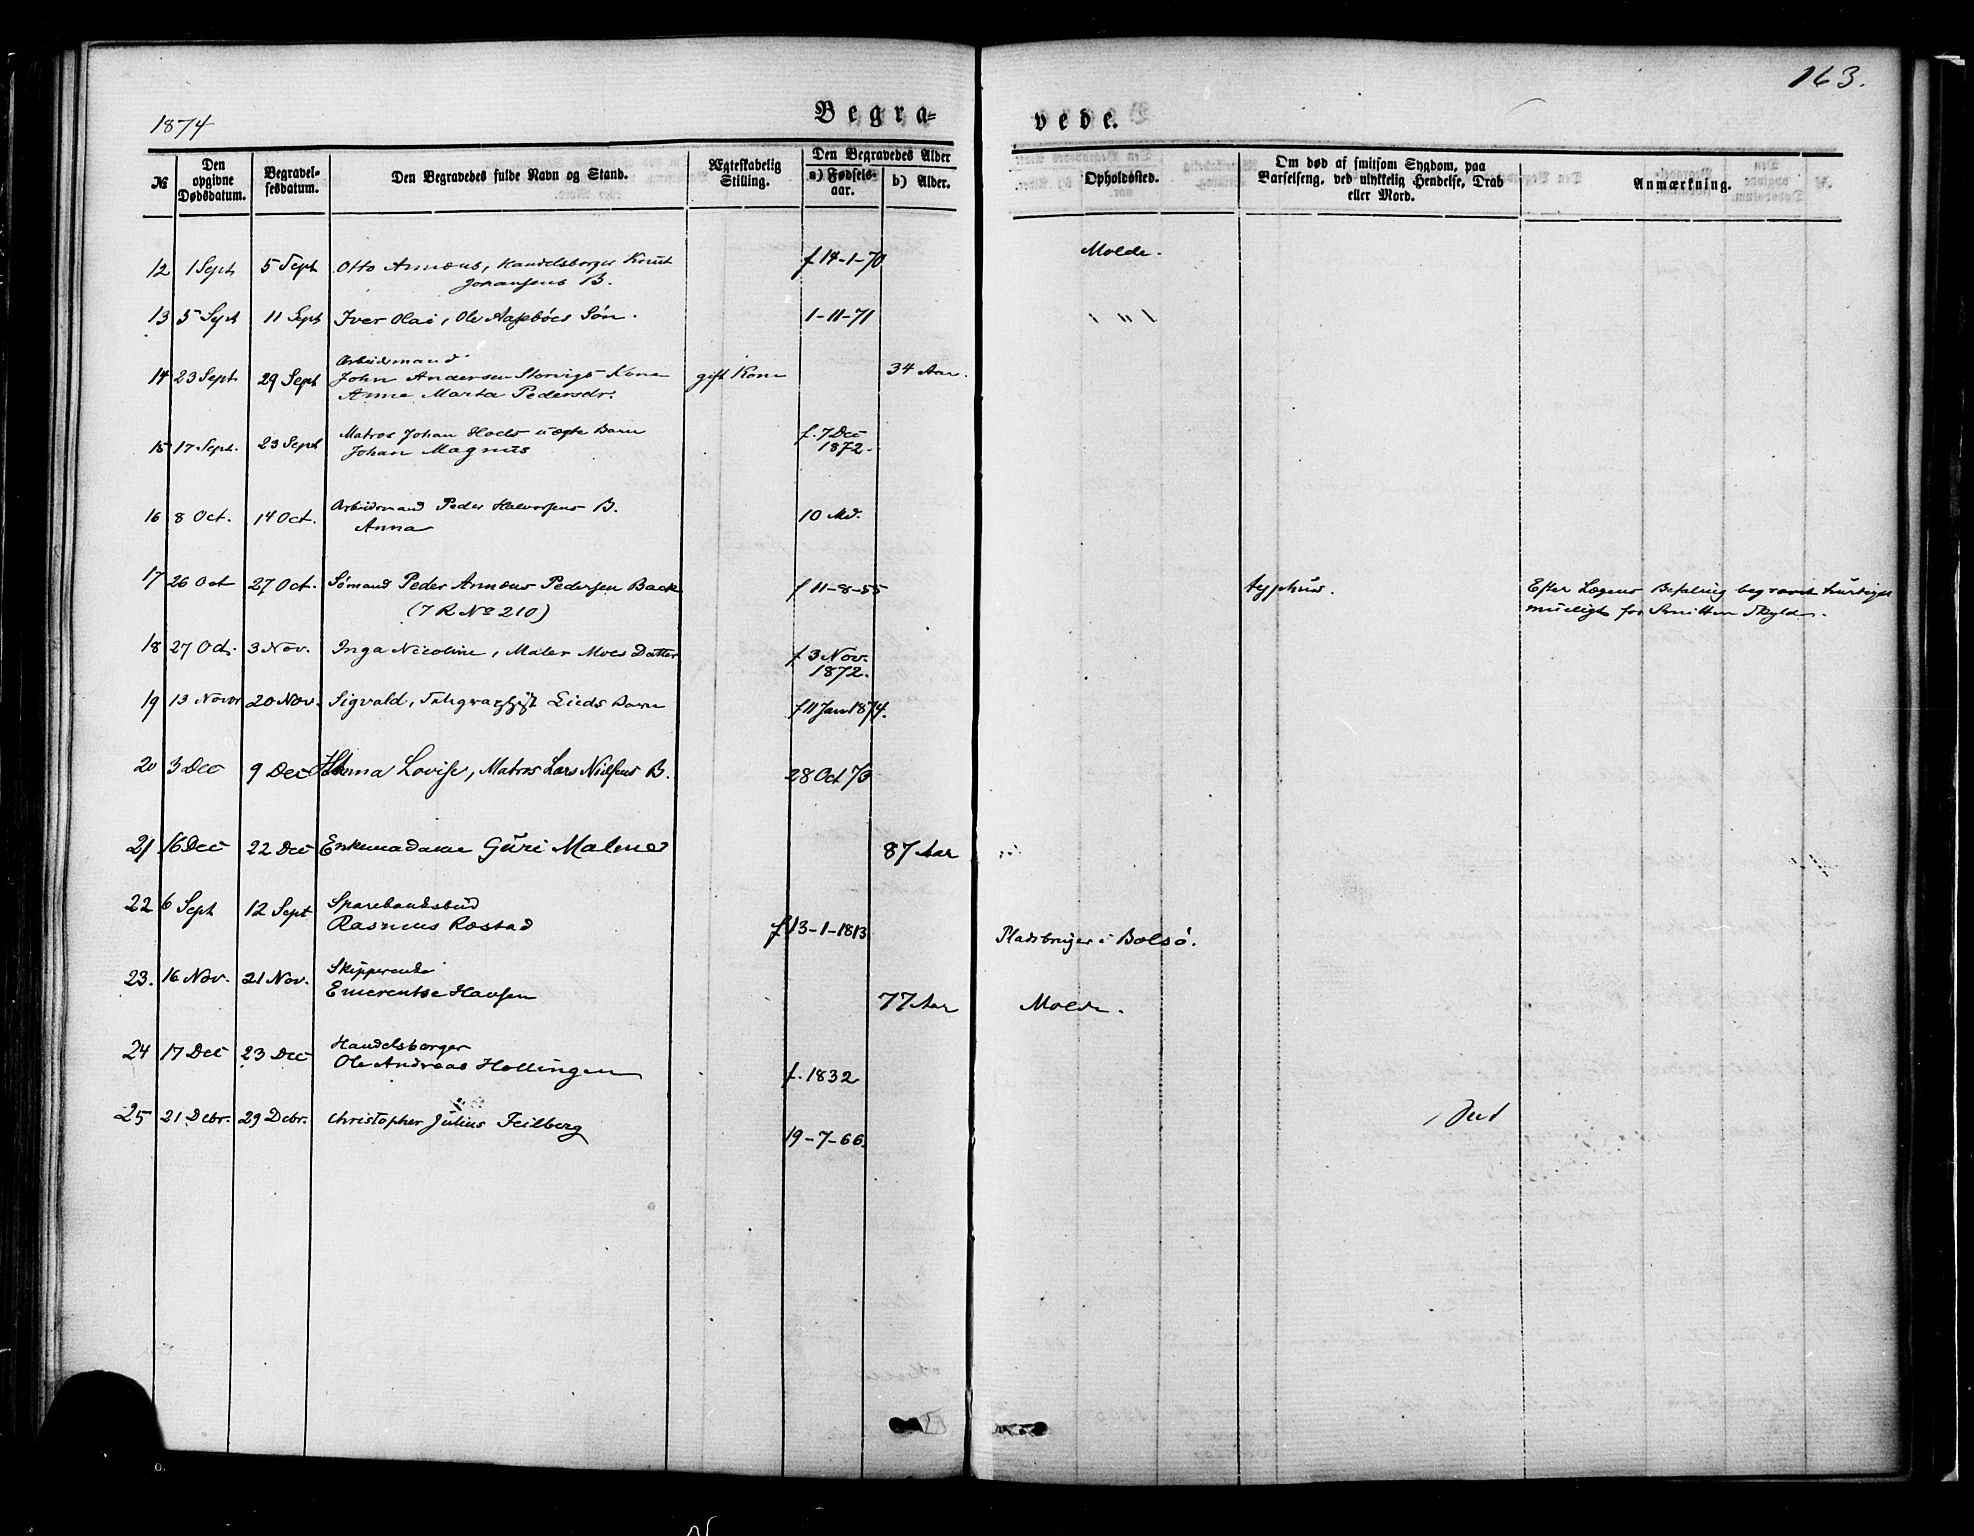 163.
1874
Begra=
vede.
№
Den opgivne Dødsdatum.
Begravelsesdatum.
Den Begravedes fulde Navn og Stand.
Ægteskabelig Stilling.
Den Begravedes Alder
a) Fødselsaar.
b) Alder.
Opholdssted.
Om død af smitsom Sygdom, paa Barselseng, ved ulykkelig Hendelse, Drab eller Mord.
Anmærkning.
12 1 Sept 5 Sept Otto Annæus, Handelsborger Knut f 14-1-70 Molde.
Johansens B.
13 5 Sept 11 Sept Iver Olai, Ole Aapebøes Søn. 1-11-71 " "
Arbeidsmand
14 23 Sept 29 Sept John Andersen Storvigs Kone gift Kone 34 Aar.
Anne Marta Pedersdr.
15 17 Sept. 23 Sept Matros Johan Hoels uægte Barn f. 7 Dec
Johan Magnus 1872.
16 8 Oct. 14 Oct. Arbeidsmand Peder Halvorsens B. 10 Md.
Anna
17 26 Oct 27 Oct. Sømand Peder Annæus Pedersen Back f 11-8-55 typhus. Efter Lægens Befaling begravet hurtigst
(7 R No 210) mueligt for Smittens Skyld.
18 27 Oct. 3 Nov. Inga Nicoline, Maler Moes Datter f 3 Nov.
1872.
19 13 Novr 20 Nov. Sigvald, Telegrafist Lieds Barn f 11 Jan 1874.
20 3 Dec 9 Dec Lovise, Matros Lars Nielsens B. 28 Oct 73
21 16 Dec 22 Dec Enkemadame Guri Malmo 87 Aar
22 6 Sept 12 Sept Sparebanksbud
Rasmus Røstad f 13-1-1813 Pladsbruger i Bolsø.
23. 16 Nov. 21 Nov. Skipperenke
Emerentse Hansen 77 Aar Molde.
24 17 Dec 23 Dec Handelsborger
Ole Andreas Hollingen f. 1832
25 21 Decbr. 29 Decbr. Christopher Julius Feilberg 19-7-66.